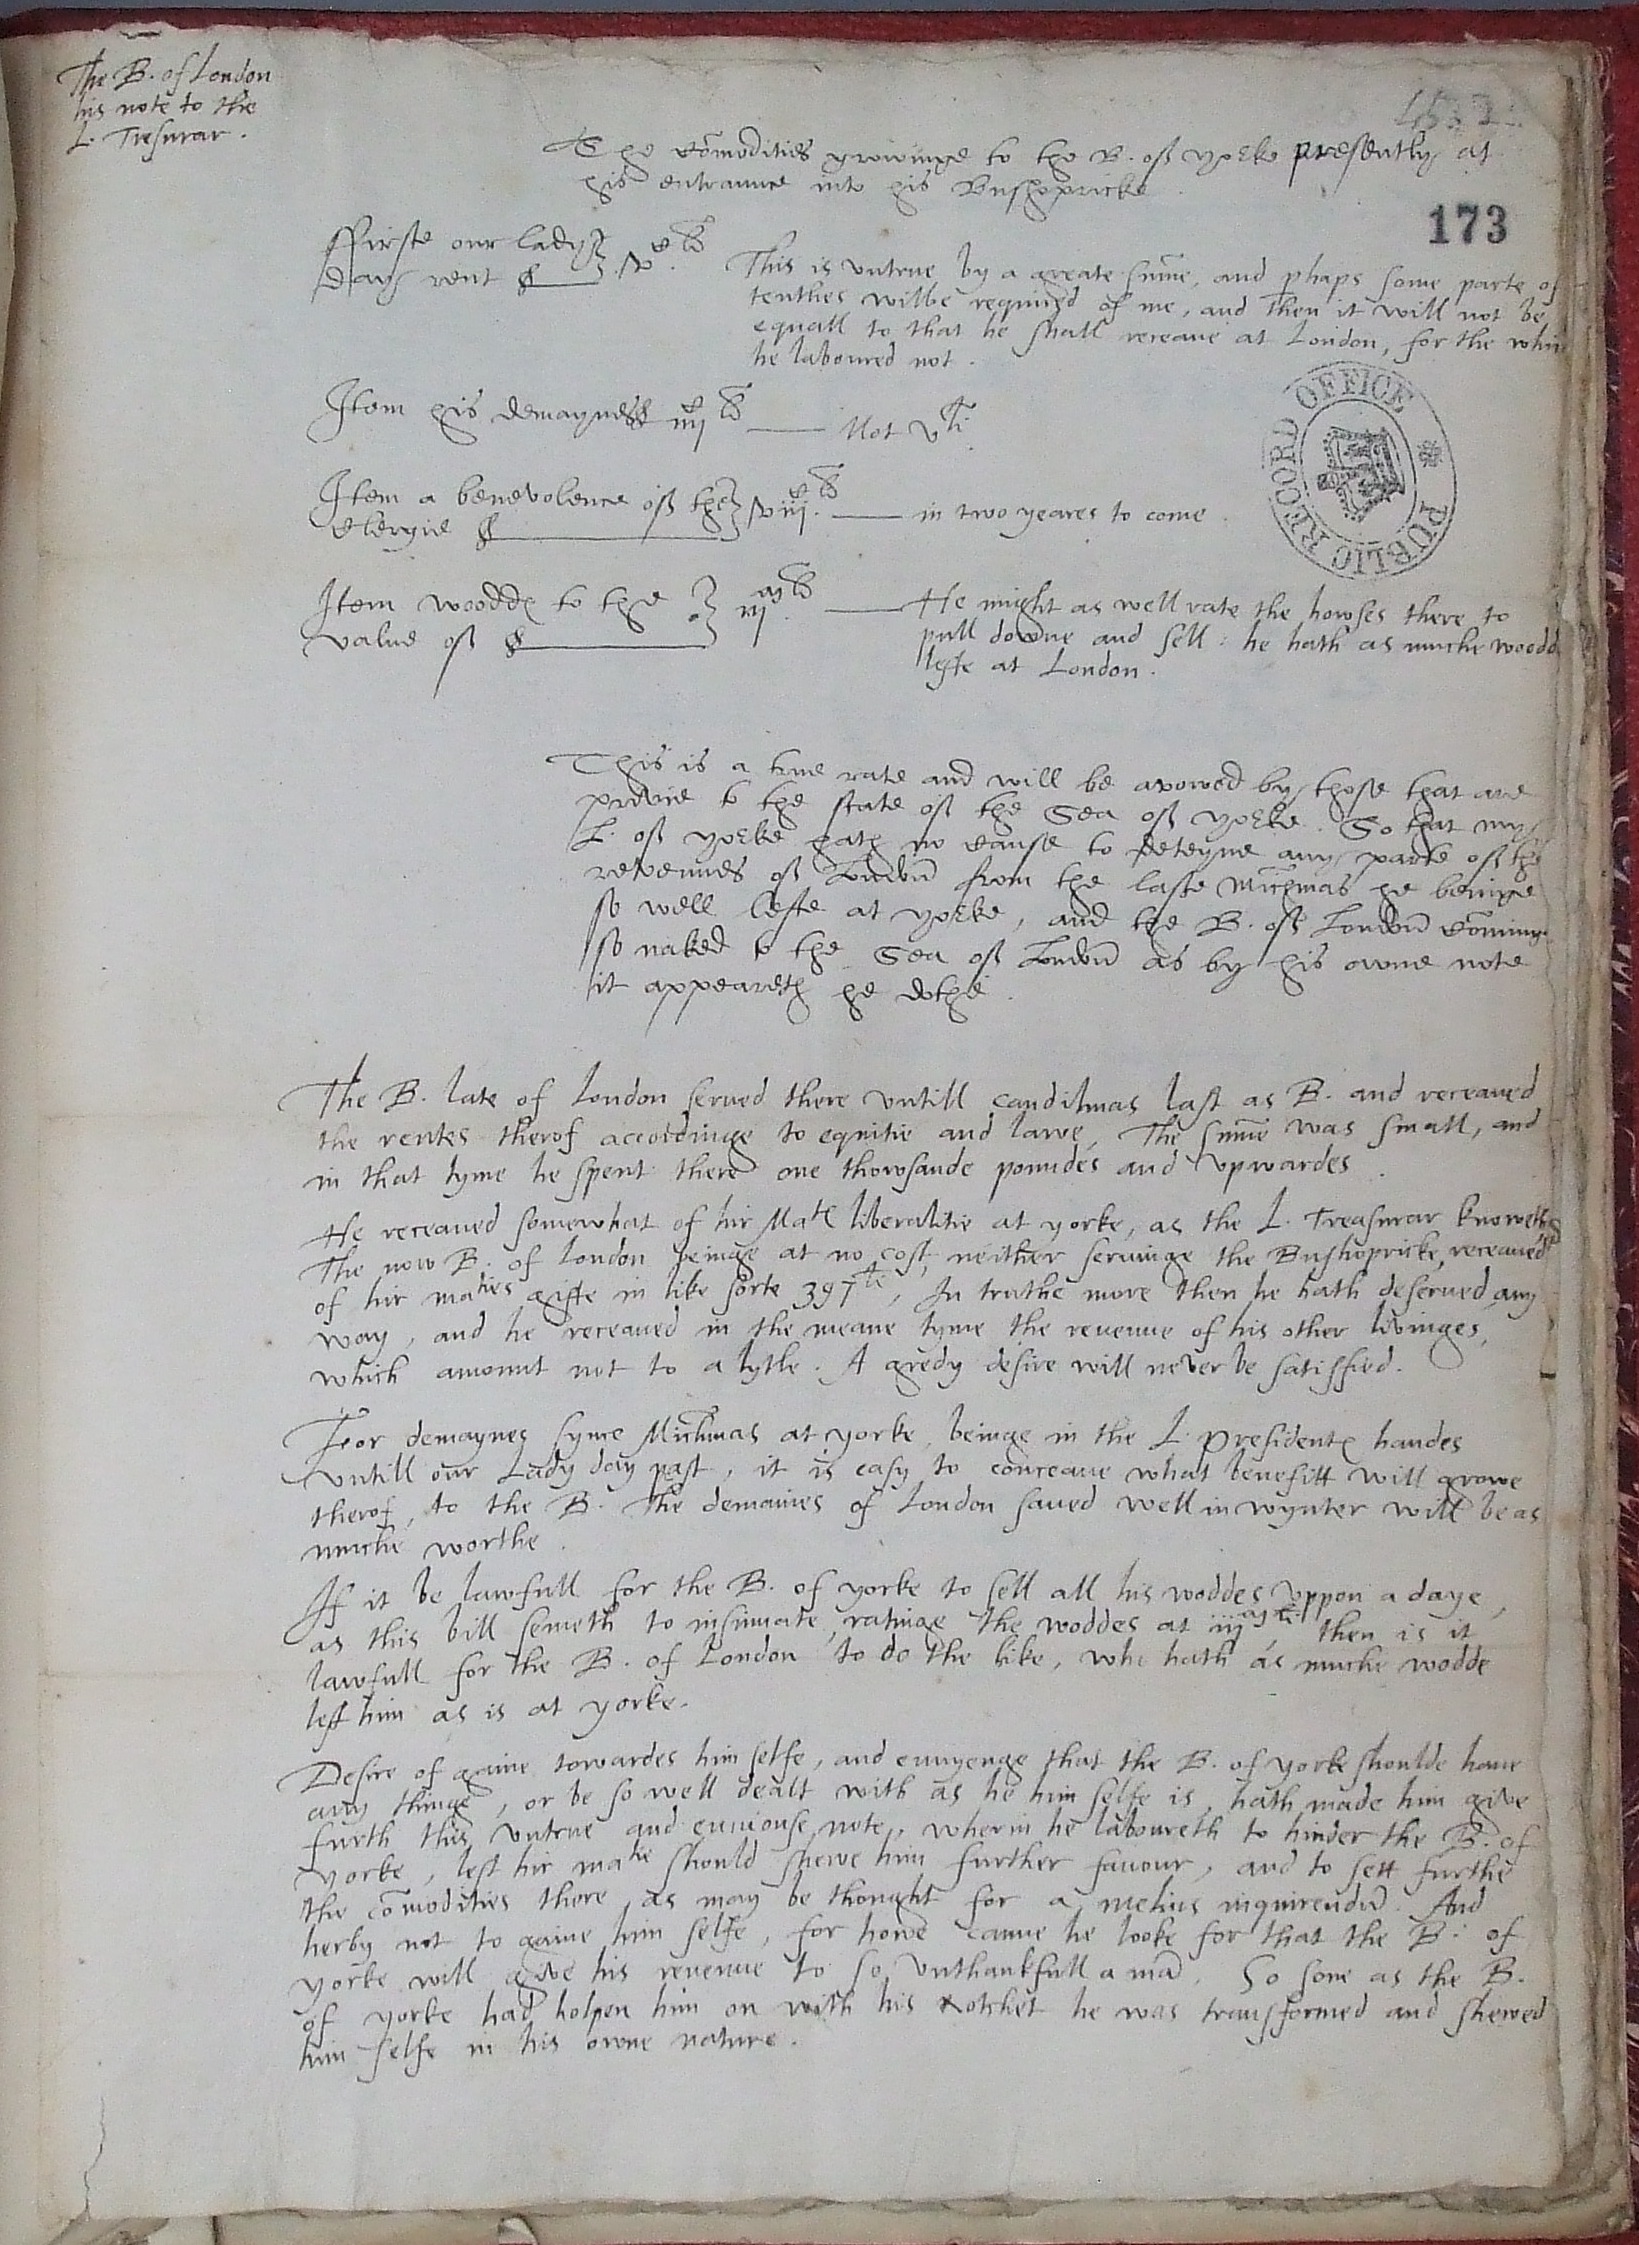 The B. of London
his note to the
L. Tresurar.
173
The cōmodities growinge to the B. off Yorke presently at
his entraunce into his Bushopricke.
Ffirste our lady
day rent
This is untrue by a greate sūme, and phaps some parte of
tenthes wilbe required of me, and then it will not be
equall to that he shall receave at London, for the which
he laboured not.
Item his demaynes iiijc li Not vli
Item a benevolence off the
clergie viijc li in two yeares to come.
Item woodds to the iijm li He might as well rate the howses there to
value off pull downe and sell: he hath as muche woodd
lefte at London.
PUBLIC RECORD OFFICE
This is a true rate and will be avowed by those that are
privie to the state off the Sea off Yorke. So that my
L. off Yorke hath no cause to deteyne any parte off the
revenues off London from the laste Michmas he beinge
so well lefte at Yorke, and the B. off London cōminge
so naked to the Sea off London as by his owne note
it appeareth he dothe.
The B. late of London served there untill candilmas last as B. and receaved
the rentes therof accordinge to equitie and lawe, The sūme was small, and
in that tyme he spent there one thowsande poundes and upwardes.
He receaved somewhat of hir Mates liberalitie at Yorke, as the L. Treasurar knoweth,
The now B. of London beinge at no cost, neither servinge the Bushopricke, receaved
of hir maties gifte in like sorte 397li, In truthe more then he hath deserved any
way, and he receaved in the meane tyme the revenue of his other livinges,
which amount not to a lytle. A gredy desire will never be satisfied.
For demaynes synce Michmas at Yorke, beinge in the L. Presidentes handes
untill our Lady day past, it is easy to conceave what benefitt will growe
therof, to the B. The demaines of London saved well in wynter will be as
muche worthe.
If it be lawfull for the B. of Yorke to sell all his woddes uppon a daye,
as this bill semeth to insinuate, ratinge the woddes at iijm li. then is it
lawfull for the B. of London to do the like, who hath as muche wodde
left him as is at Yorke.
Desire of gaine towardes him selfe, and envyenge that the B. of Yorke shoulde have
any thinge, or be so well dealt with as he him selfe is, hath made him give
furth this untrue and enviouse note, wherin he laboureth to hinder the B. of
Yorke, lest hir matie should shewe him further favour, and to sett furthe
the cōmodities there, as may be thought for a melius inquirendū. And
herby not to gaine him selfe, for howe canne he looke for that the B. of
Yorke will give his revenue to so unthankfull a mā. So sone as the B.
of Yorke had holpen him on with his Rotchet he was transformed and shewed
him selfe in his owne nature.